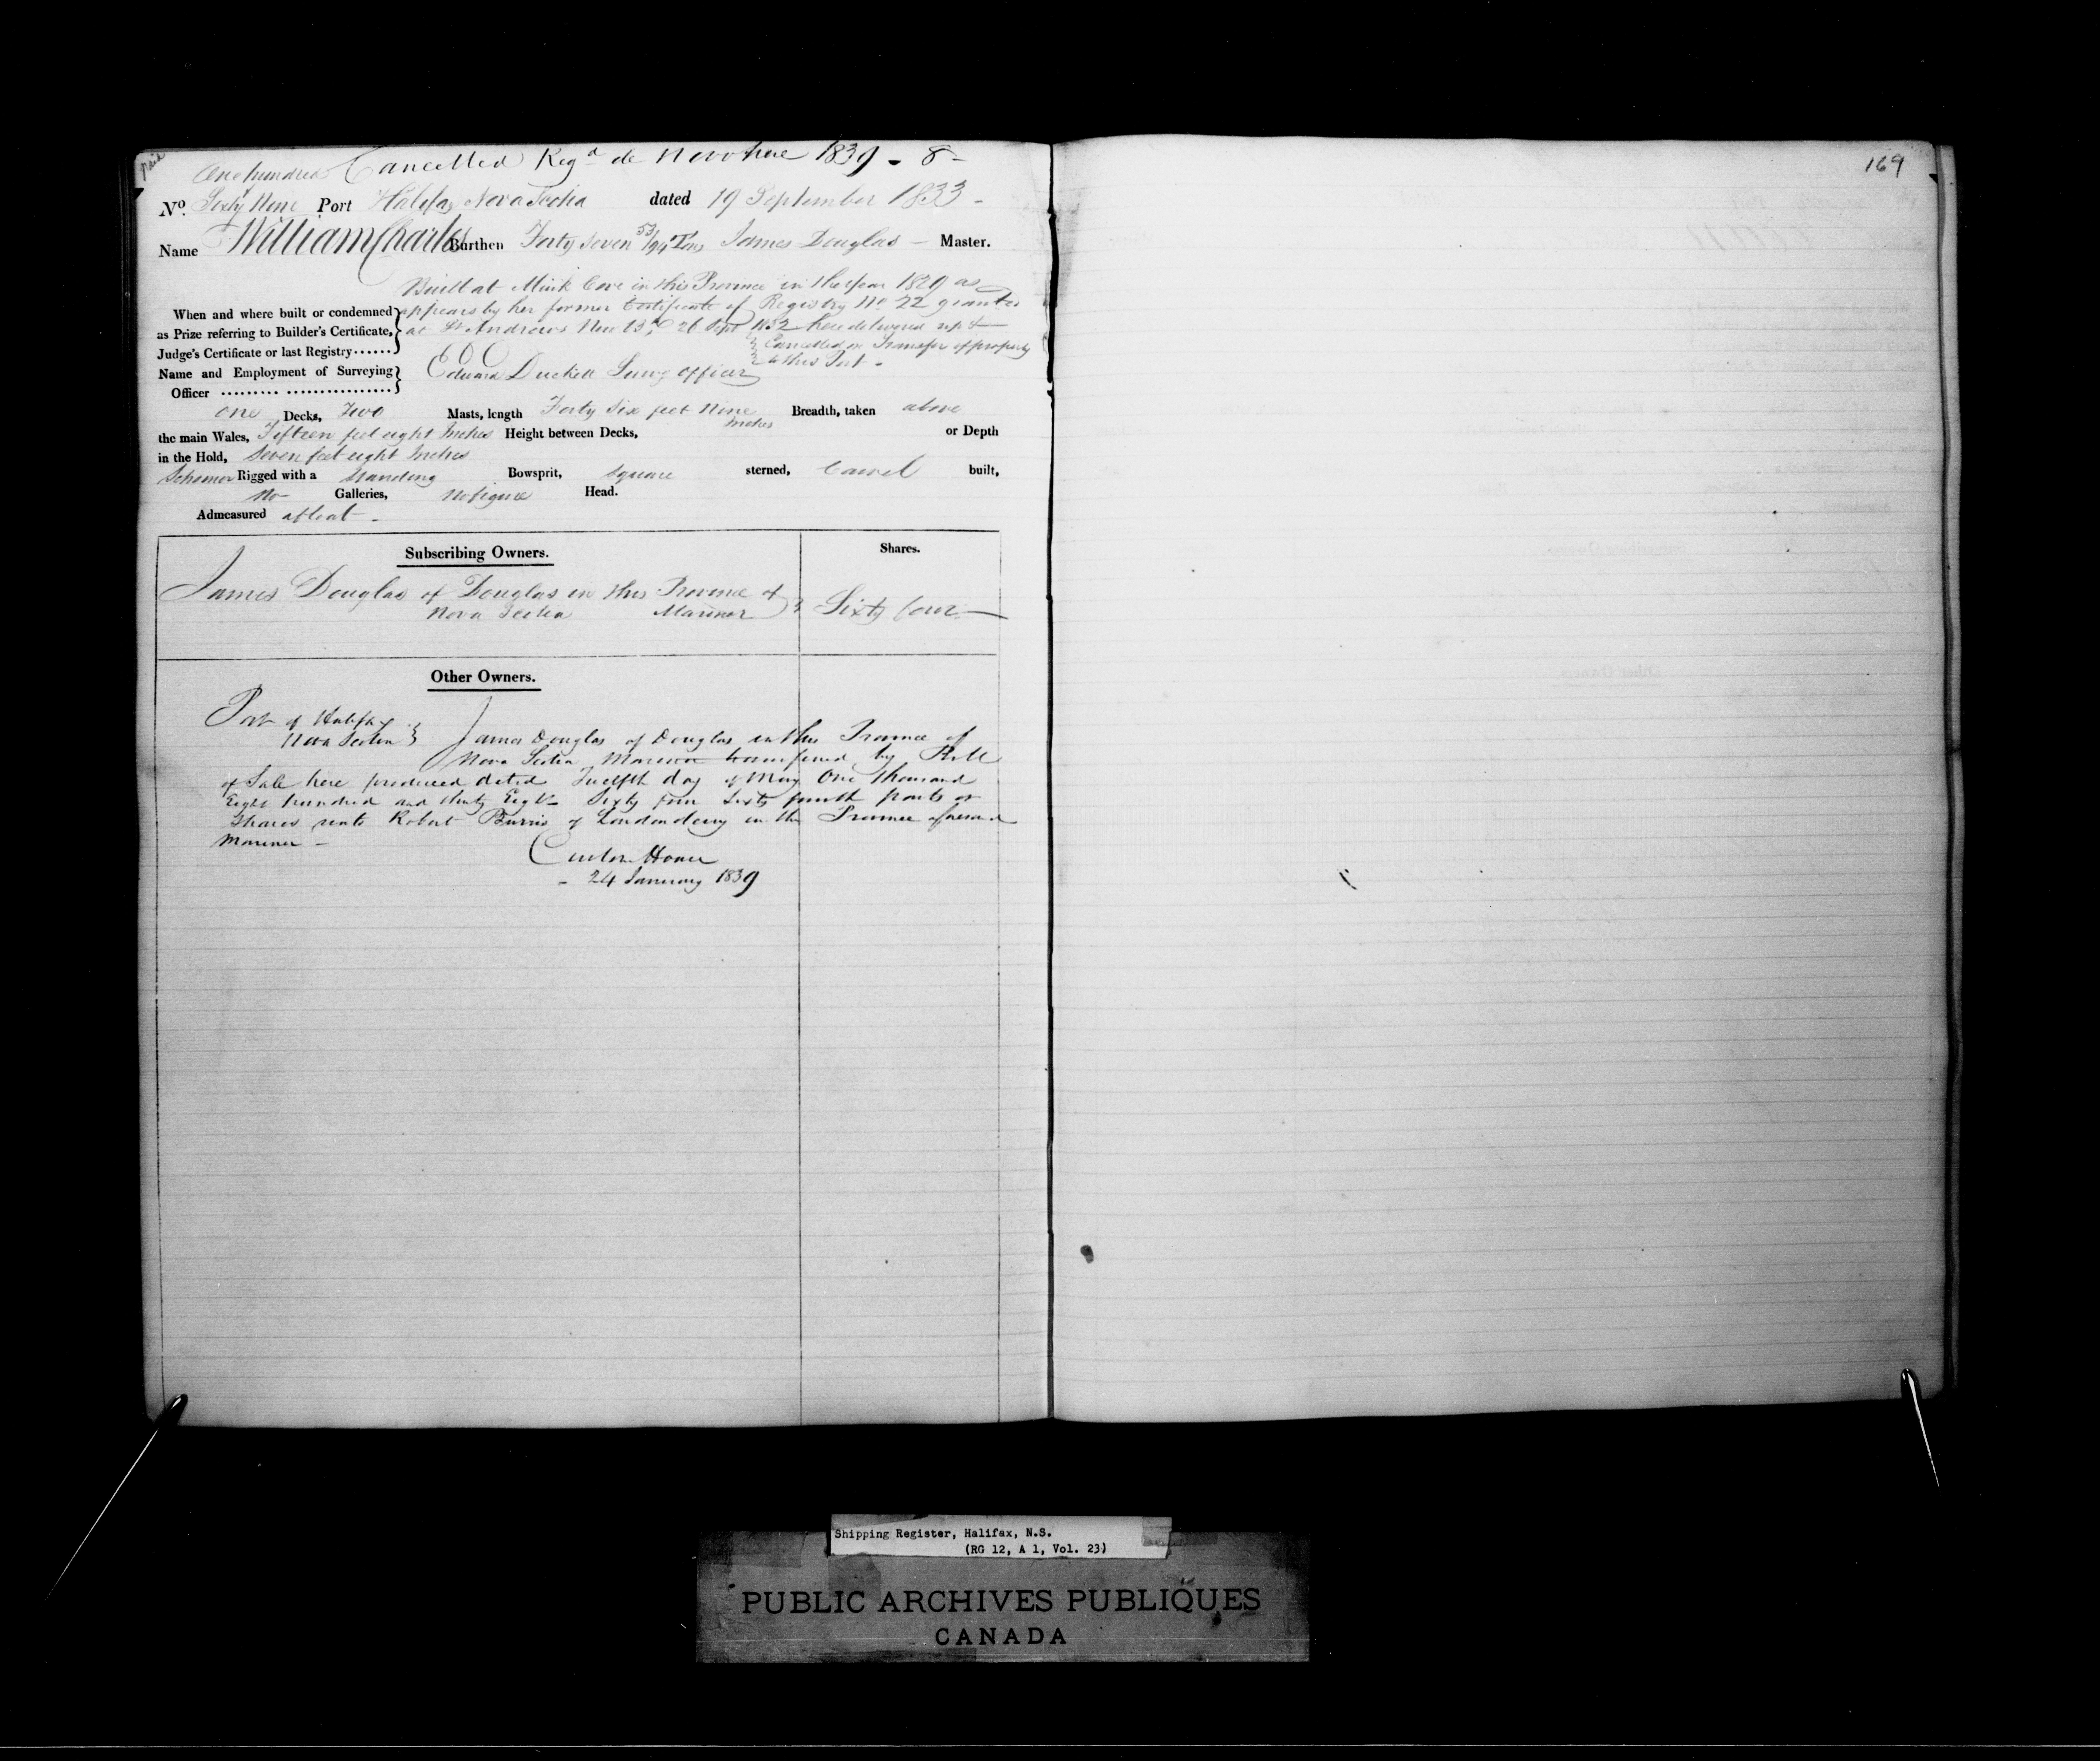 Paid
Cancelled Regd de Novo here 1839 - 8 -
One hundred &
No. Sixty Nine Port Halifax Nova Scotia dated 19 September 1833 -
Name William Charles Burthen Forty Seven 53/94 Tons James Douglas - Master.
Built at Mink Cove in this Province in the Year 1829 as
When and where built or condemned appears by her former Certificate of Registry No 22 granted
as Prize referring to Builder's Certificate, at St Andrews New 26 Sept 1832 here delivered up &
Judge's Certificate or last Registry Cancelled on Transfer of property
to this Port -
Name and Employment of Surveying Edward Duckett Surv'g officer
Officer
One Decks, Two Masts, length Forty Six feet Nine Inches Breadth, taken above
the main Wales, Fifteen feet eight Inches Height between Decks, or Depth
in the Hold, Seven feet eight Inches
Schooner Rigged with a Standing Bowsprit, Square sterned, Carvel built,
No Galleries, No figure Head.
Admeasured afloat -
Subscribing Owners. Shares.
James Douglas of Douglas in this Province of
Nova Scotia Mariner Sixty four
Other Owners.
Port of Halifax
Nova Scotia James Douglas of Douglas in this Province of
Nova Scotia Mariner transferred by Bill
of Sale here produced dated Twelfth day of May One thousand
Eight hundred and thirty Eight Sixty four Sixty fourth parts or
Shares unto Robert Burris of Londonderry in the Province aforesaid
Mariner -
Custom House
- 24 January 1839
169
Shipping Register, Halifax, N.S.
(RG 12, A 1, Vol. 23)
PUBLIC ARCHIVES PUBLIQUES
CANADA